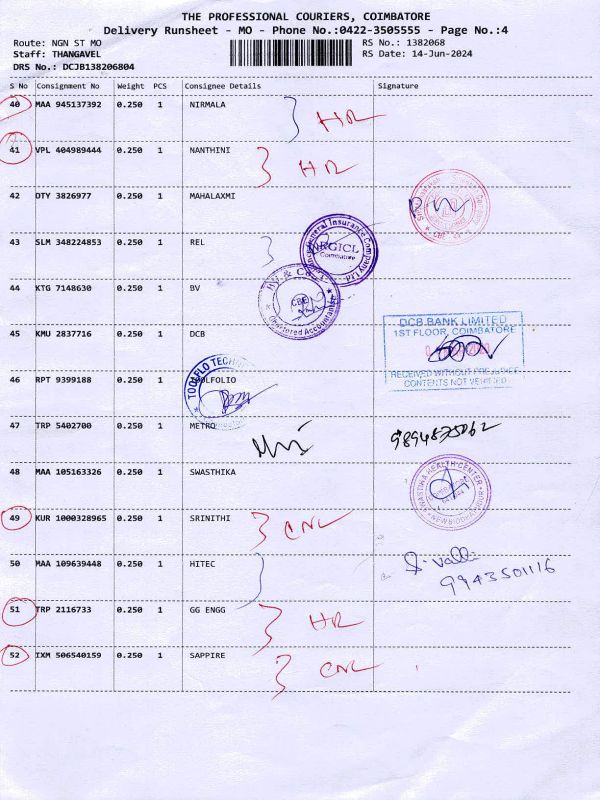 THE PROFESSIONAL COURIERS, COIMBATORE
Delivery Runsheet - MO - Phone No.:0422-3505555 - Page No.:4
Route: NGN ST MO
RS No.: 1382068
Staff: THANGAVEL
RS Date: 14-Jun-2024
DRS No.: DCJB138206804
S No Consignment No Weight PCS Consignee Details Signature
40 MAA 945137392 0.250 1 NIRMALA
HR
41 VPL 404989444 0.250 1 NANTHINI
HR
42 OTY 3826977 0.250 1 MAHALAXMI
43 SLM 348224853 0.250 1 REL
General Insurance Company Ltd
RGICL
Coimbatore
44 KTG 7148630 0.250 1 BV
Chartered Accountants
CBE
45 KMU 2837716 0.250 1 DCB
DCB BANK LIMITED
1ST FLOOR, COIMBATORE
RECEIVED WITHOUT PREJUDICE
CONTENTS NOT VERIFIED
46 RPT 9399188 0.250 1 TOOLFOLIO
47 TRP 5402700 0.250 1 METRO
48 MAA 105163326 0.250 1 SWASTHIKA
SWASTIKA HEALTH CENTER
49 KUR 1000328965 0.250 1 SRINITHI
CNL
50 MAA 109639448 0.250 1 HITEC
S. Valli
9943501116
51 TRP 2116733 0.250 1 GG ENGG
HR
52 IXM 506540159 0.250 1 SAPPIRE
CNL